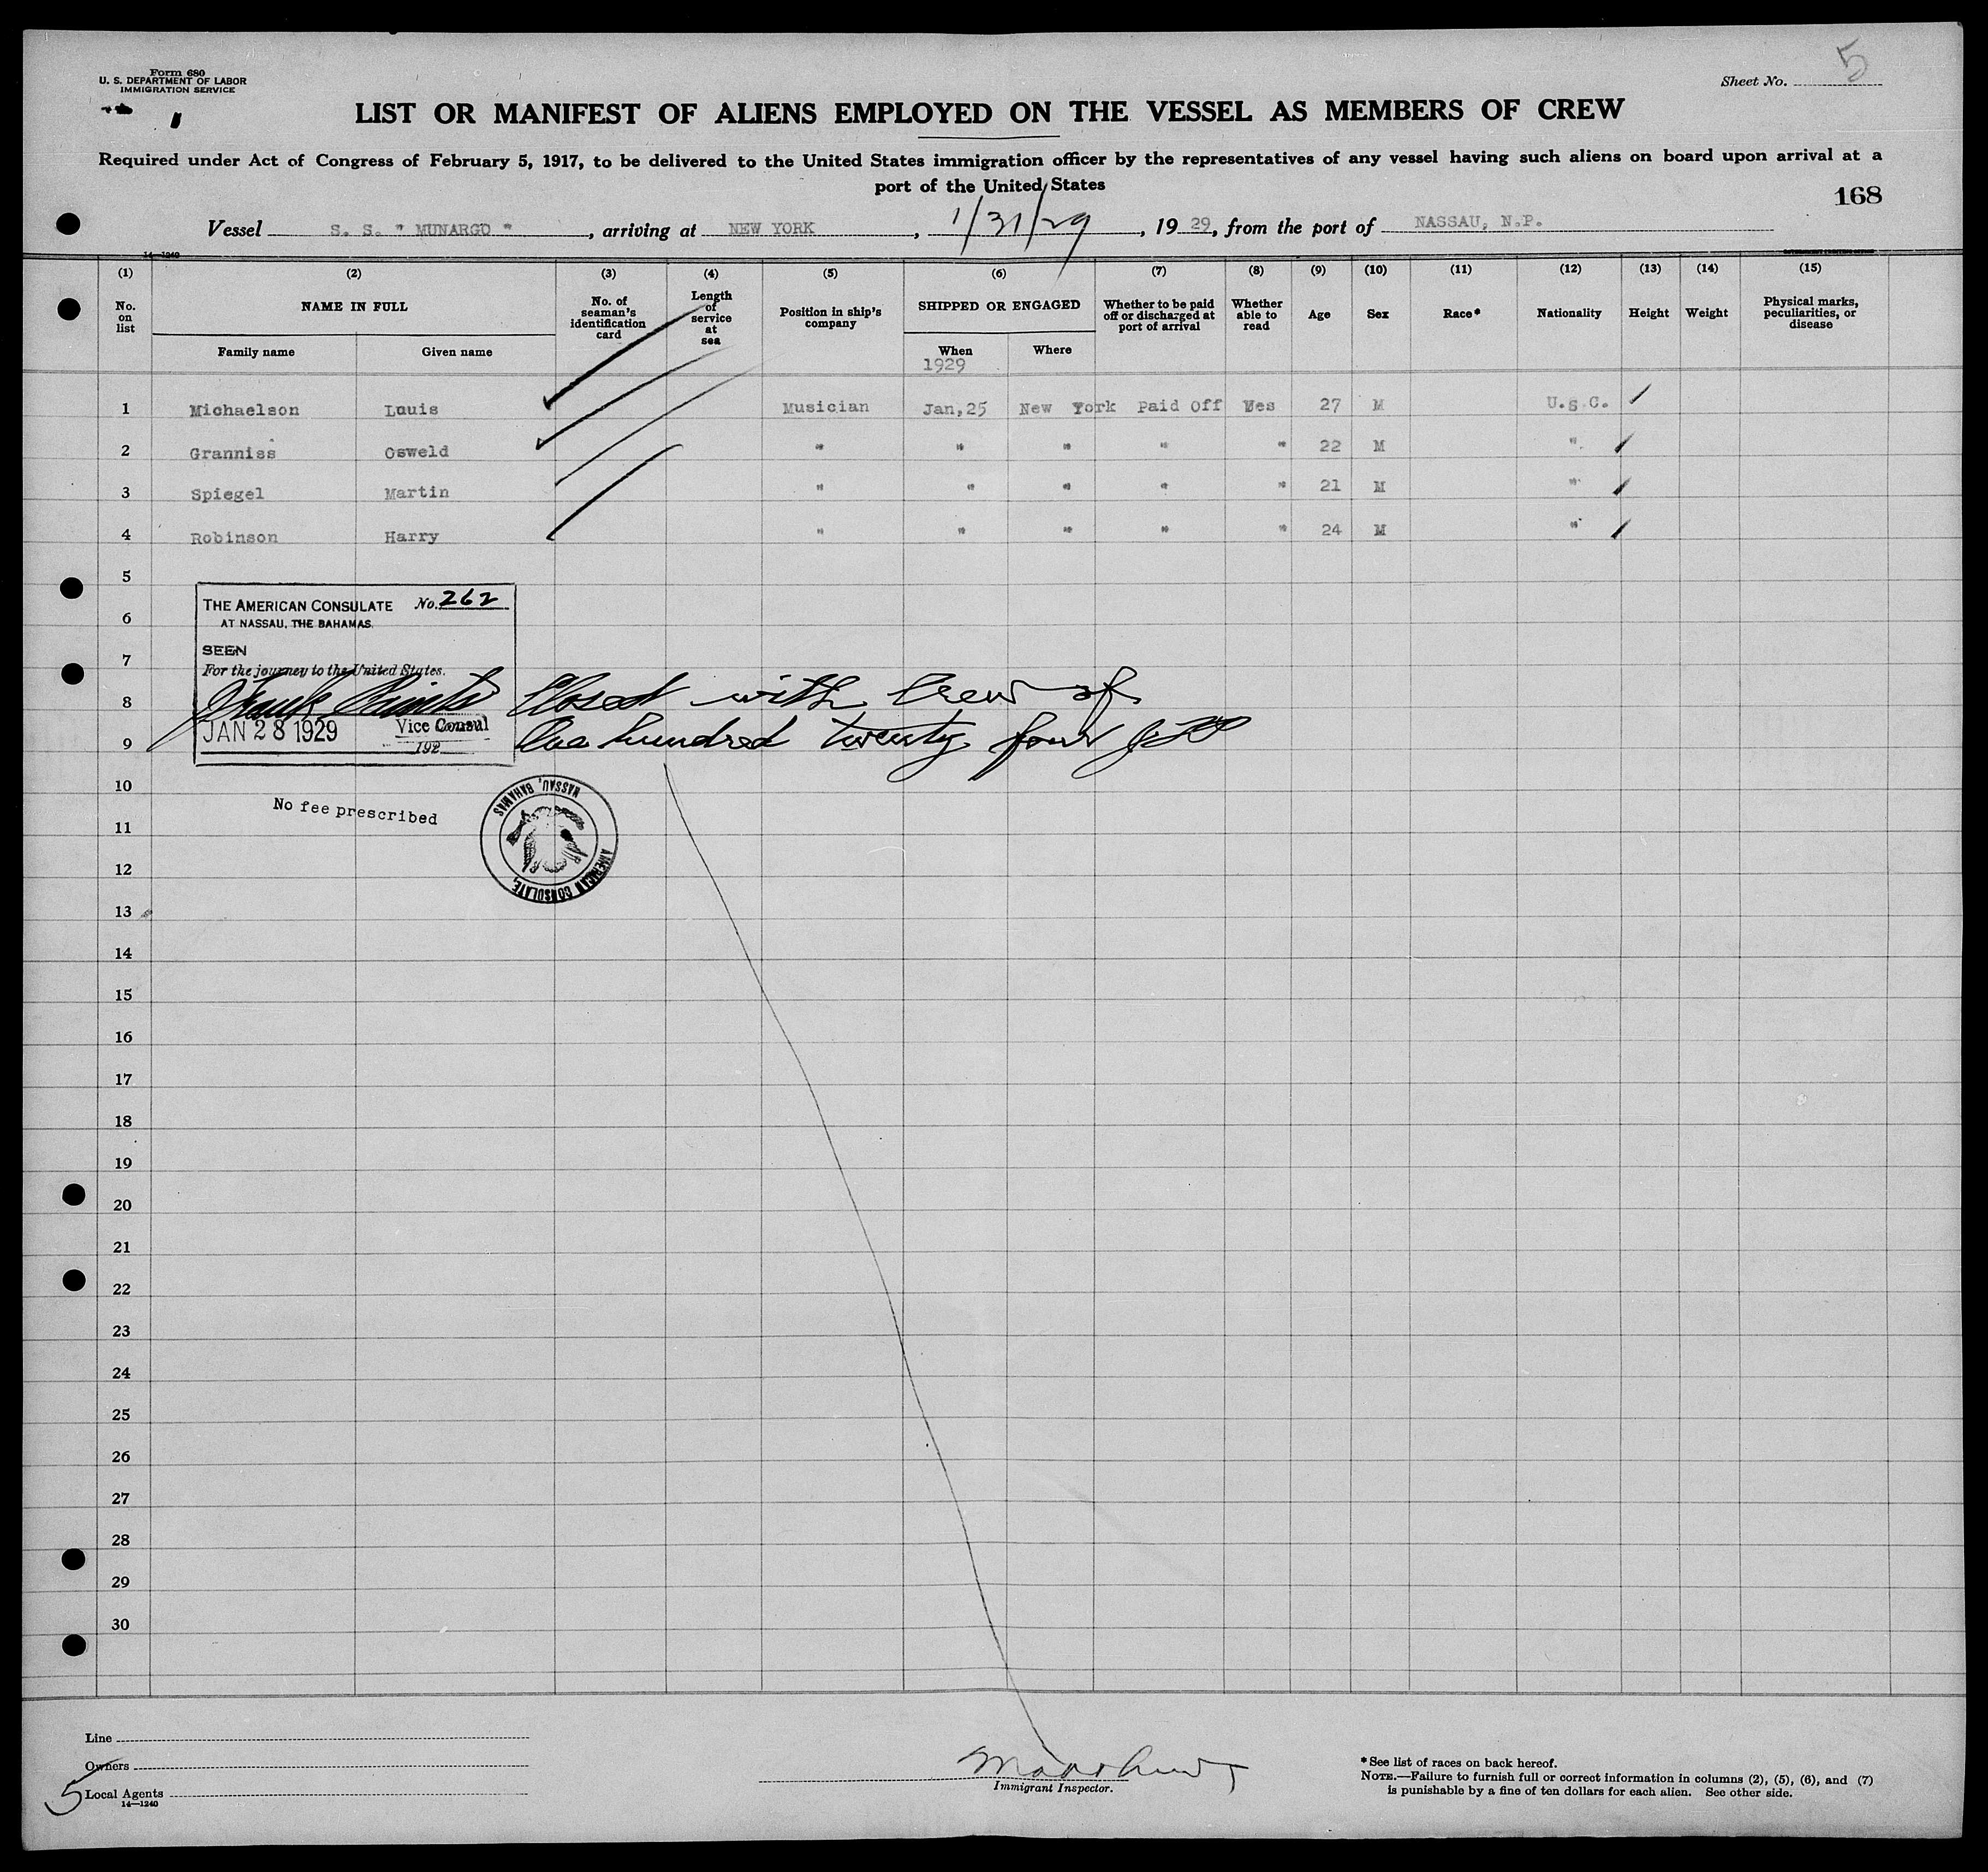 Form 680
U. S. DEPARTMENT OF LABOR
IMMIGRATION SERVICE
Sheet No. 5
LIST OR MANIFEST OF ALIENS EMPLOYED ON THE VESSEL AS MEMBERS OF CREW
Required under Act of Congress of February 5, 1917, to be delivered to the United States immigration officer by the representatives of any vessel having such aliens on board upon arrival at a
port of the United States
168
Vessel S. S. " MUNARGO ", arriving at NEW YORK, 1/31/29, 19 29, from the port of NASSAU, N.P.
14—1240
(1) (2) (3) (4) (5) (6) (7) (8) (9) (10) (11) (12) (13) (14) (15)
No. on list NAME IN FULL No. of seaman's identification card Length of service at sea Position in ship's company SHIPPED OR ENGAGED Whether to be paid off or discharged at port of arrival Whether able to read Age Sex Race* Nationality Height Weight Physical marks, peculiarities, or disease
Family name Given name When Where
1929
1 Michaelson Louis Musician Jan,25 New York Paid Off Yes 27 M U.S.C.
2 Granniss Osweld " " " " " 22 M "
3 Spiegel Martin " " " " " 21 M "
4 Robinson Harry " " " " " 24 M "
5
THE AMERICAN CONSULATE No. 262
6
AT NASSAU, THE BAHAMAS.
SEEN
7
For the journey to the United States.
8 Closed with Crew of
JAN 28 1929 Vice Consul
9 One hundred twenty four
192
10
No fee prescribed
AMERICAN CONSULATE, NASSAU, BAHAMAS
11
12
13
14
15
16
17
18
19
20
21
22
23
24
25
26
27
28
29
30
Line
Owners
5 Local Agents
14—1240
Immigrant Inspector.
*See list of races on back hereof.
NOTE.—Failure to furnish full or correct information in columns (2), (5), (6), and (7)
is punishable by a fine of ten dollars for each alien. See other side.